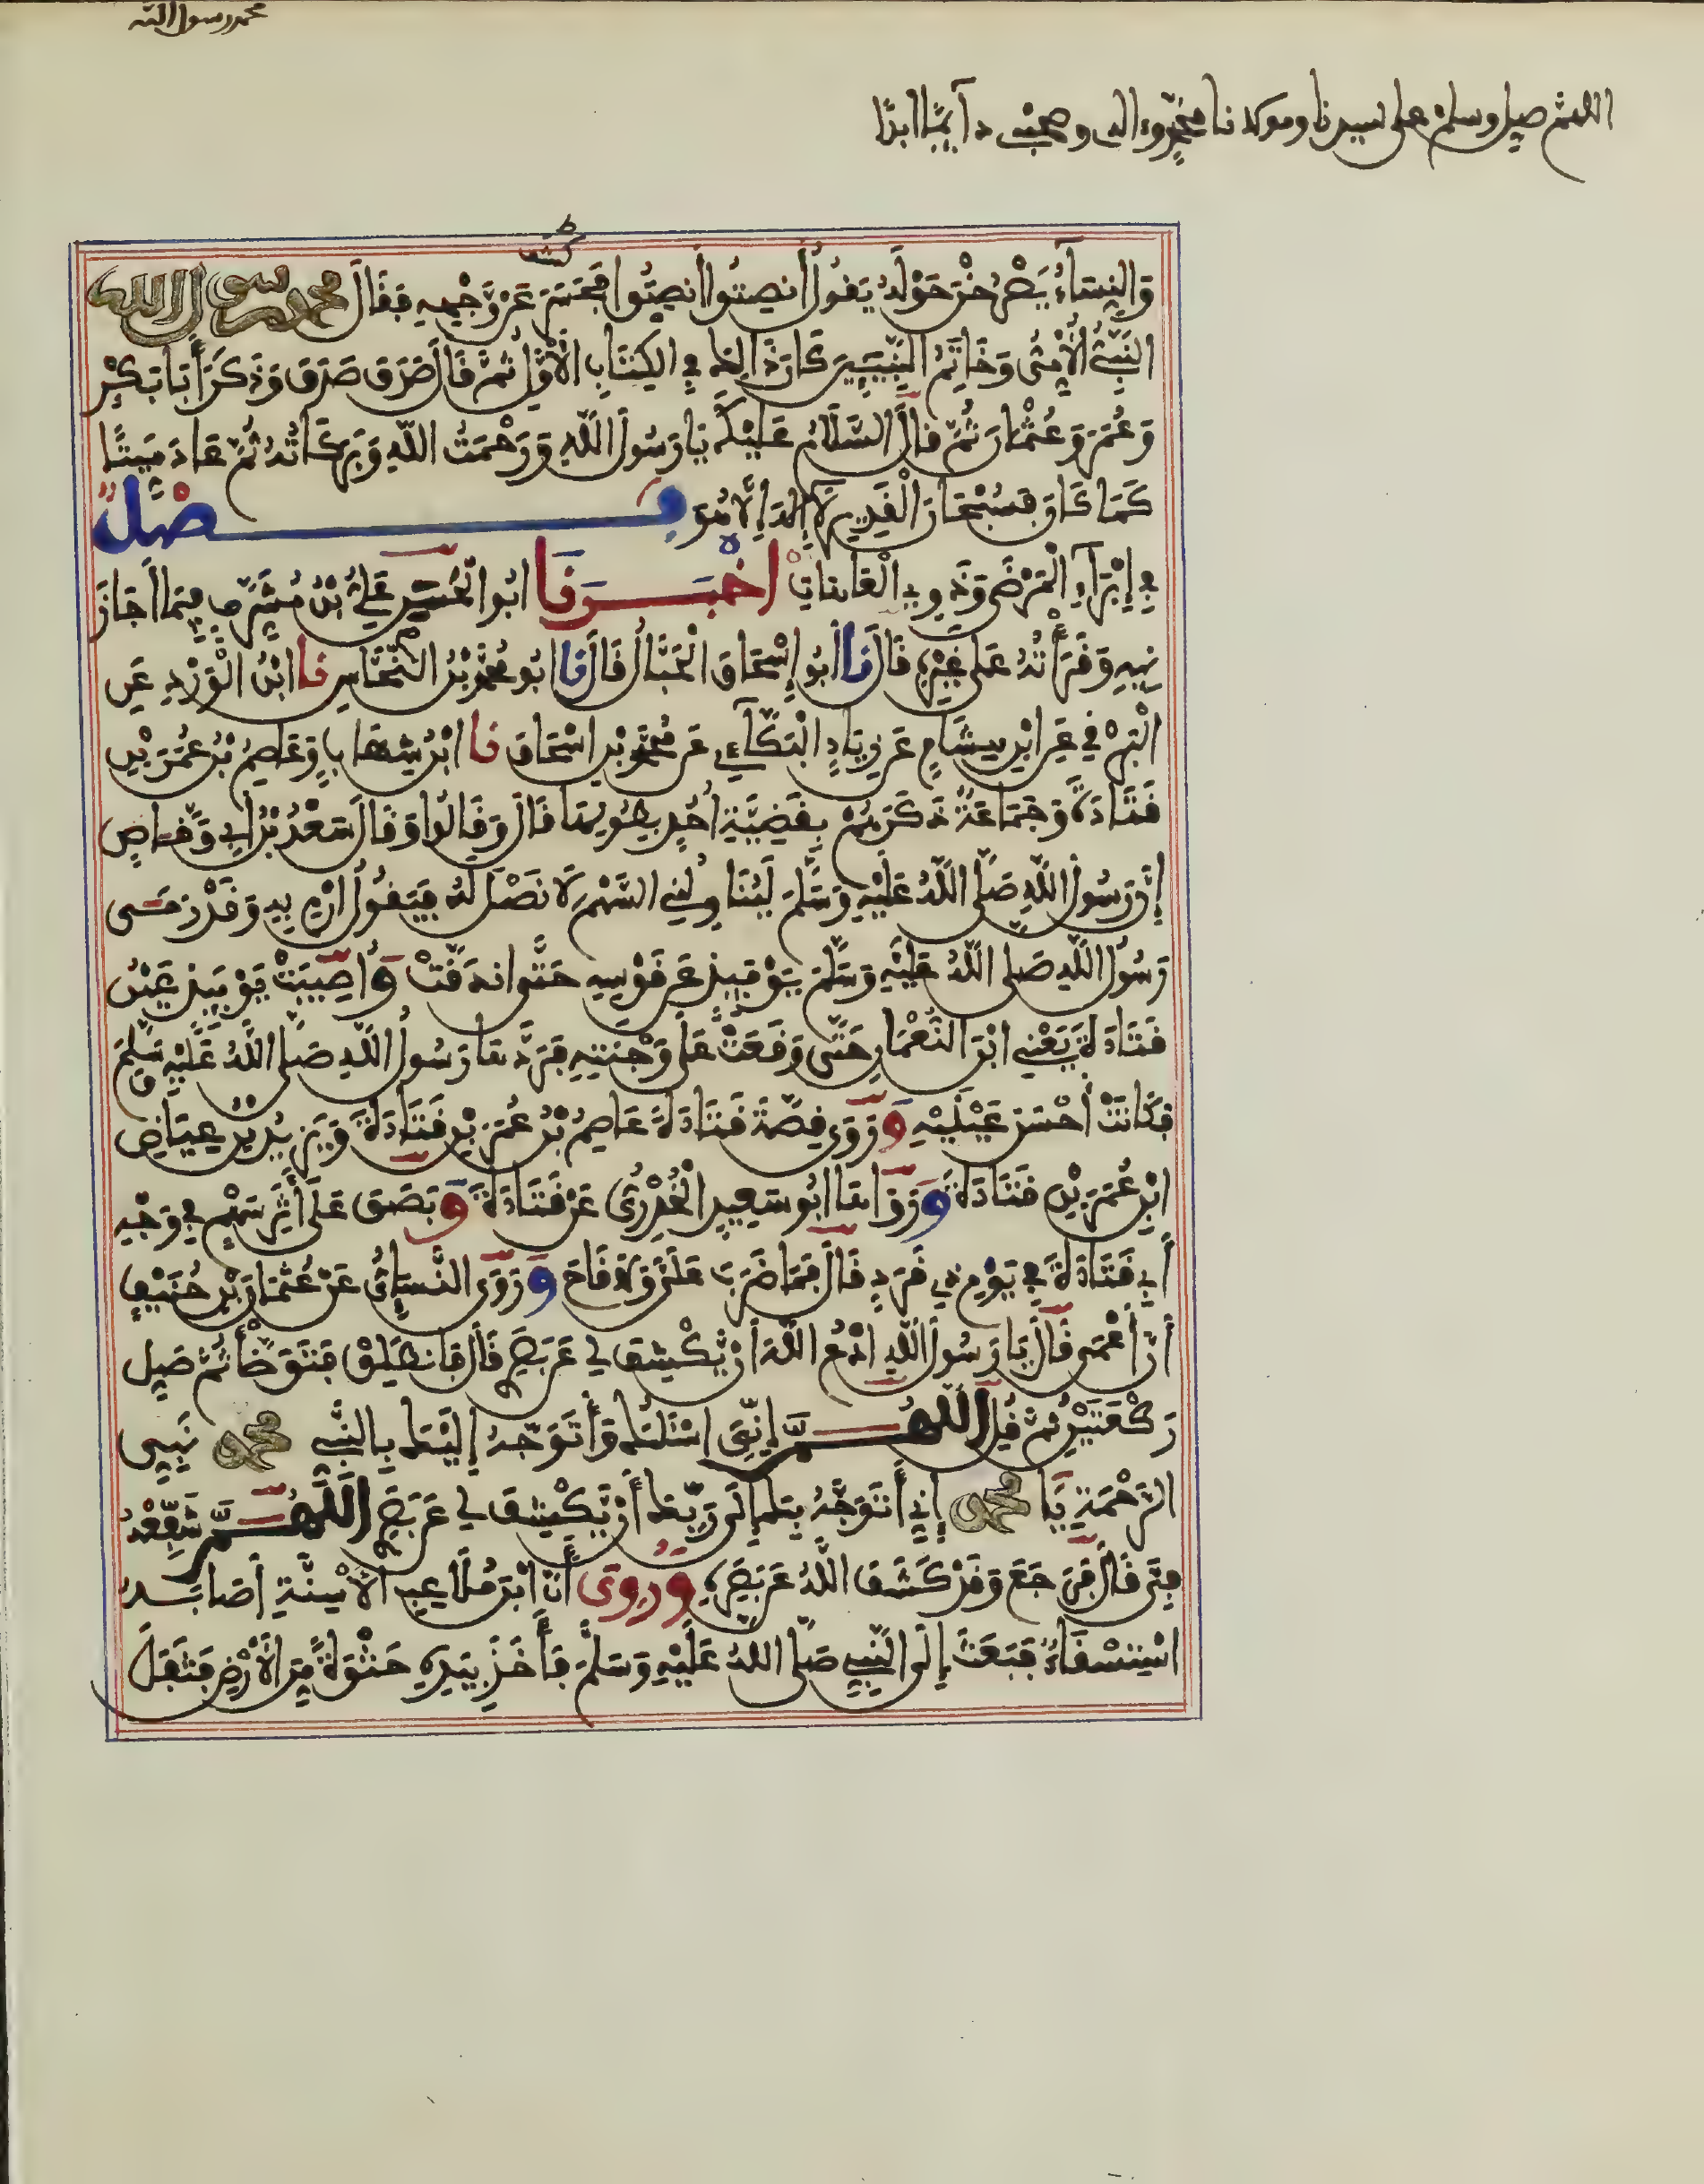 محمد رسول الله
اللهم صل وسلم على سيدنا ومولانا محمد وءاله وصحبه دآئما ابدًا
كشف
وَالنِّسَاءُ يَصْرُخْنَ حَوْلَهُ يَقُولُ أَنصِتُوا أَنصِتُوا فَحَسَرَ عَنْ وَجْهِهِ فَقَالَ مُحَمَّد رسول الله
النَّبِيُّ الْأُمِّيُّ وَخَاتَمُ النَّبِيِّينَ كَانَ ذَالِكَ فِي الْكِتَابِ الْأَوَّلِ ثُمَّ قَالَ صَدَقَ صَدَقَ وَذَكَرَ أَبَا بَكْرٍ
وَعُمَرَ وَعُثْمَانَ ثُمَّ قَالَ السَّلَامُ عَلَيْكَ يَا رَسُولَ اللَّهِ وَرَحْمَتُ اللَّهِ وَبَرَكَاتُهُ ثُمَّ عَادَ مَيِّتًا
كَمَا كَانَ فَسُبْحَانَ الْقَدِيرِ لَا إِلَهَ إِلَّا هُوَ فصْلٌ
فِي إِبْرَاءِ الْمَرْضَى وَذَوِي الْعَاهَاتِ أخْبَرَنَا ابُوا الْحُسَيْنِ عَلِيُّ بْنُ مُشَرَّفٍ فِيمَا أَجَازَ
نِيهِ وَقَرَأْتُهُ عَلَى غَيْرِهِ قَالَ نا أَبُو إِسْحَاقَ الْحَبَّالُ قَالَ نا ابُو مُحَمَّدِ بْنُ النَّحَّاسِ نا ابْنُ الْوَرْدِ عَنِ
الْبَرْقِي عَنِ ابْنِ هِشَامٍ عَنْ زِيَادٍ الْبَكَّاءِيِ عَنْ مُحَمَّدِ بْنِ اسْحَاقَ نا ابْنُ شِهَابٍ وَعَاصِمُ بْنُ عُمَرَ بْنِ
قَتَادَةَ وَجَمَاعَةٌ ذَكَرَهُمْ بِقَضِيَّةِ أُحُدٍ بِطُولِهَا قَالَ وَقَالُوا وَقَالَ سَعْدُ بْنُ أَبِي وَقَّاصٍ
إِنَّ رَسُولَ اللَّهِ صَلَّى اللَّهُ عَلَيْهِ وَسَلَّمَ لَيُنَاوِلُنِي السَّهْمَ لَا نَصْلَ لَهُ فَيَقُولُ ارْمِ بِهِ وَقَدْ رَمَى
رَسُولُ اللَّهِ صَلَّى اللَّهُ عَلَيْهِ وَسَلَّمَ يَوْمَئِذٍ عَنْ قَوْسِهِ حَتَّى انْدَقَّتْ وَأُصِيبَتْ يَوْمَئِذٍ عَيْنُ
قَتَادَةَ يَعْنِي ابْنَ النُّعْمَانِ حَتَّى وَقَعَتْ عَلَى وَجْنَتِهِ فَرَدَّهَا رَسُولُ اللَّهِ صَلَّى اللَّهُ عَلَيْهِ وَسَلَّمَ
فَكَانَتْ أَحْسَنَ عَيْنَيْهِ وَرَوَى قِصَّةَ قَتَادَةَ عَاصِمُ بْنُ عُمَرَ بْنِ قَتَادَةَ وَيَزِيدُ بْنُ عِيَاضِ
ابْنِ عُمَرَ بْنِ قَتَادَةَ وَرَوَاهَا ابُو سَعِيدٍ الْخُدْرِيُّ عَنْ قَتَادَةَ وَبَصَقَ عَلَى أَثَرِ سَهْمٍ فِي وَجْهِ
أَبِي قَتَادَةَ فِي يَوْمِ ذِي قَرَدٍ قَالَ فَمَا ضَرَبَ عَلَيَّ وَلَا قَاحَ وَرَوَى النَّسَاءِيُّ عَنْ عُثْمَانَ بْنِ حُنَيْفٍ
أَنَّ أَعْمَى قَالَ يَا رَسُولَ اللَّهِ ادْعُ اللَّهَ أَنْ يَّكْشِفَ لِي عَن بَصَرِي قَالَ فَانطَلِقْ فَتَوَضَّأْ ثُمَّ صَلِّ
رَكْعَتَيْنِ ثُمَّ قُلِ اللَّهُمَّ إِنِّي اسْئَلُكَ وَأَتَوَجَّهُ إِلَيْكَ بِالنَّبِيِّ محمد نَبِيِّ
الرَّحْمَةِ يَا محمد إِنِّي أَتَوَجَّهُ بِكَ إِلَى رَبِّكَ أَنْ يَّكْشِفَ لِي عَن بَصَرِي اللَّهُمَّ شَفِّعْهُ
فِيَّ قَالَ فَرَجَعَ وَقَدْ كَشَفَ اللَّهُ عَن بَصَرِهِ وَرُوِيَ أَنَّ ابْنَ مُلَاعِبِ الْأَسِنَّةِ أَصَابَهُ
اسْتِسْقَاءٌ فَبَعَثَ إِلَى النَّبِيِّ صَلَّى اللَّهُ عَلَيْهِ وَسَلَّمَ فَأَخَذَ بِيَدِهِ حَثْوَةً مِّنَ الْأَرْضِ فَتَفَلَ